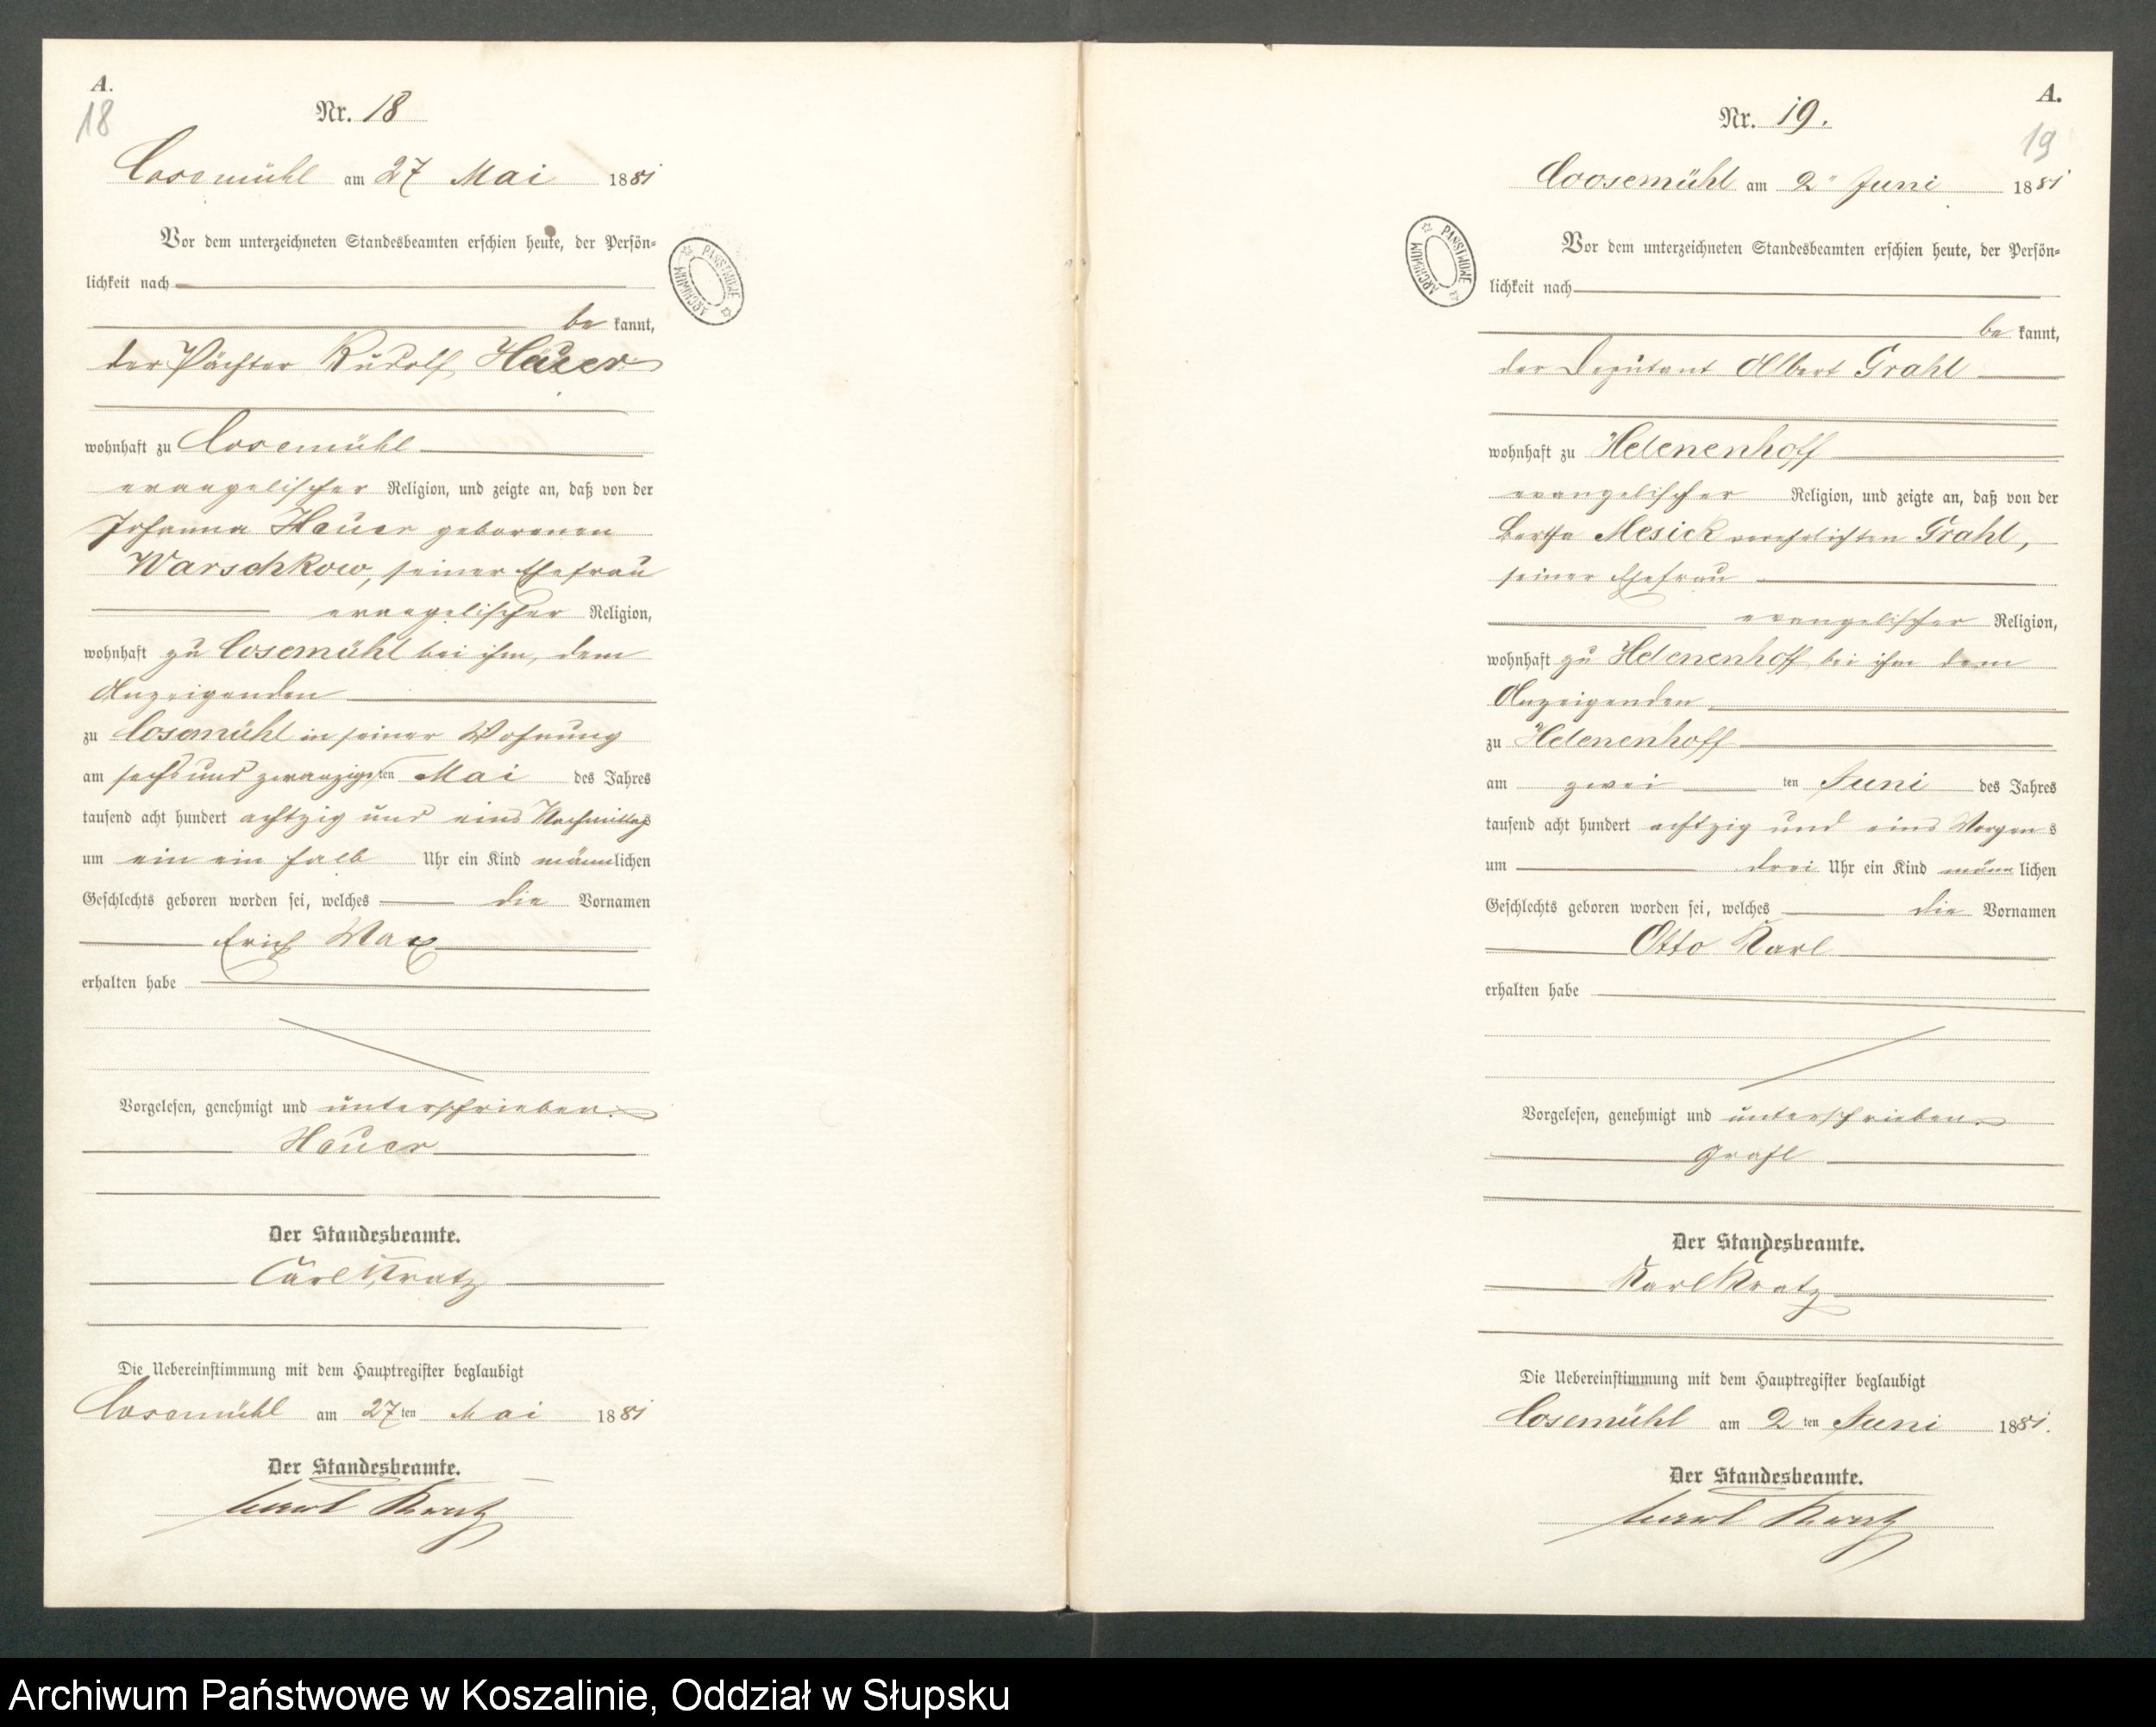 A.
18
Nr. 18
Cosemühl am 27 Mai 1881
Vor dem unterzeichneten Standesbeamten erschien heute, der Persön=
lichkeit nach
be kannt,
der Pächter Rudolf Hauer
wohnhaft zu Cosemühl
evangelischer Religion, und zeigte an, daß von der
Johanna Hauer geborenen
Warschkow, seiner Ehefrau
evangelischer Religion,
wohnhaft zu Cosemühl bei ihm, dem
Anzeigenden
zu Cosemühl in seiner Wohnung
am sechs und zwanzigsten Mai des Jahres
tausend acht hundert achtzig und eins Nachmittags
um ein ein halb Uhr ein Kind männlichen
Geschlechts geboren worden sei, welches die Vornamen
Erich Max
erhalten habe
Vorgelesen, genehmigt und unterschrieben.
Hauer
Der Standesbeamte.
Carl Kratz
Die Uebereinstimmung mit dem Hauptregister beglaubigt
Cosemühl am 27ten Mai 1881
Der Standesbeamte.
Carl Kratz
ARCHIWUM PAŃSTWOWE
A.
19
Nr. 19.
Coosemühl am 2ᵗ Juni 1881
Vor dem unterzeichneten Standesbeamten erschien heute, der Persön=
lichkeit nach
be kannt,
der Deputant Albert Grahl
wohnhaft zu Helenenhoff
evangelischer Religion, und zeigte an, daß von der
Bertha Mesick verehelichten Grahl,
seiner Ehefrau
evangelischer Religion,
wohnhaft zu Helenenhoff bei ihm dem
Anzeigenden
zu Helenenhoff
am zwei ten Juni des Jahres
tausend acht hundert achtzig und eins Morgens
um drei Uhr ein Kind männlichen
Geschlechts geboren worden sei, welches die Vornamen
Otto Karl
erhalten habe
Vorgelesen, genehmigt und unterschrieben.
Grahl
Der Standesbeamte.
Karl Kratz
Die Uebereinstimmung mit dem Hauptregister beglaubigt
Cosemühl am 2ten Juni 1881.
Der Standesbeamte.
Carl Kratz
ARCHIWUM PAŃSTWOWE
Archiwum Państwowe w Koszalinie, Oddział w Słupsku